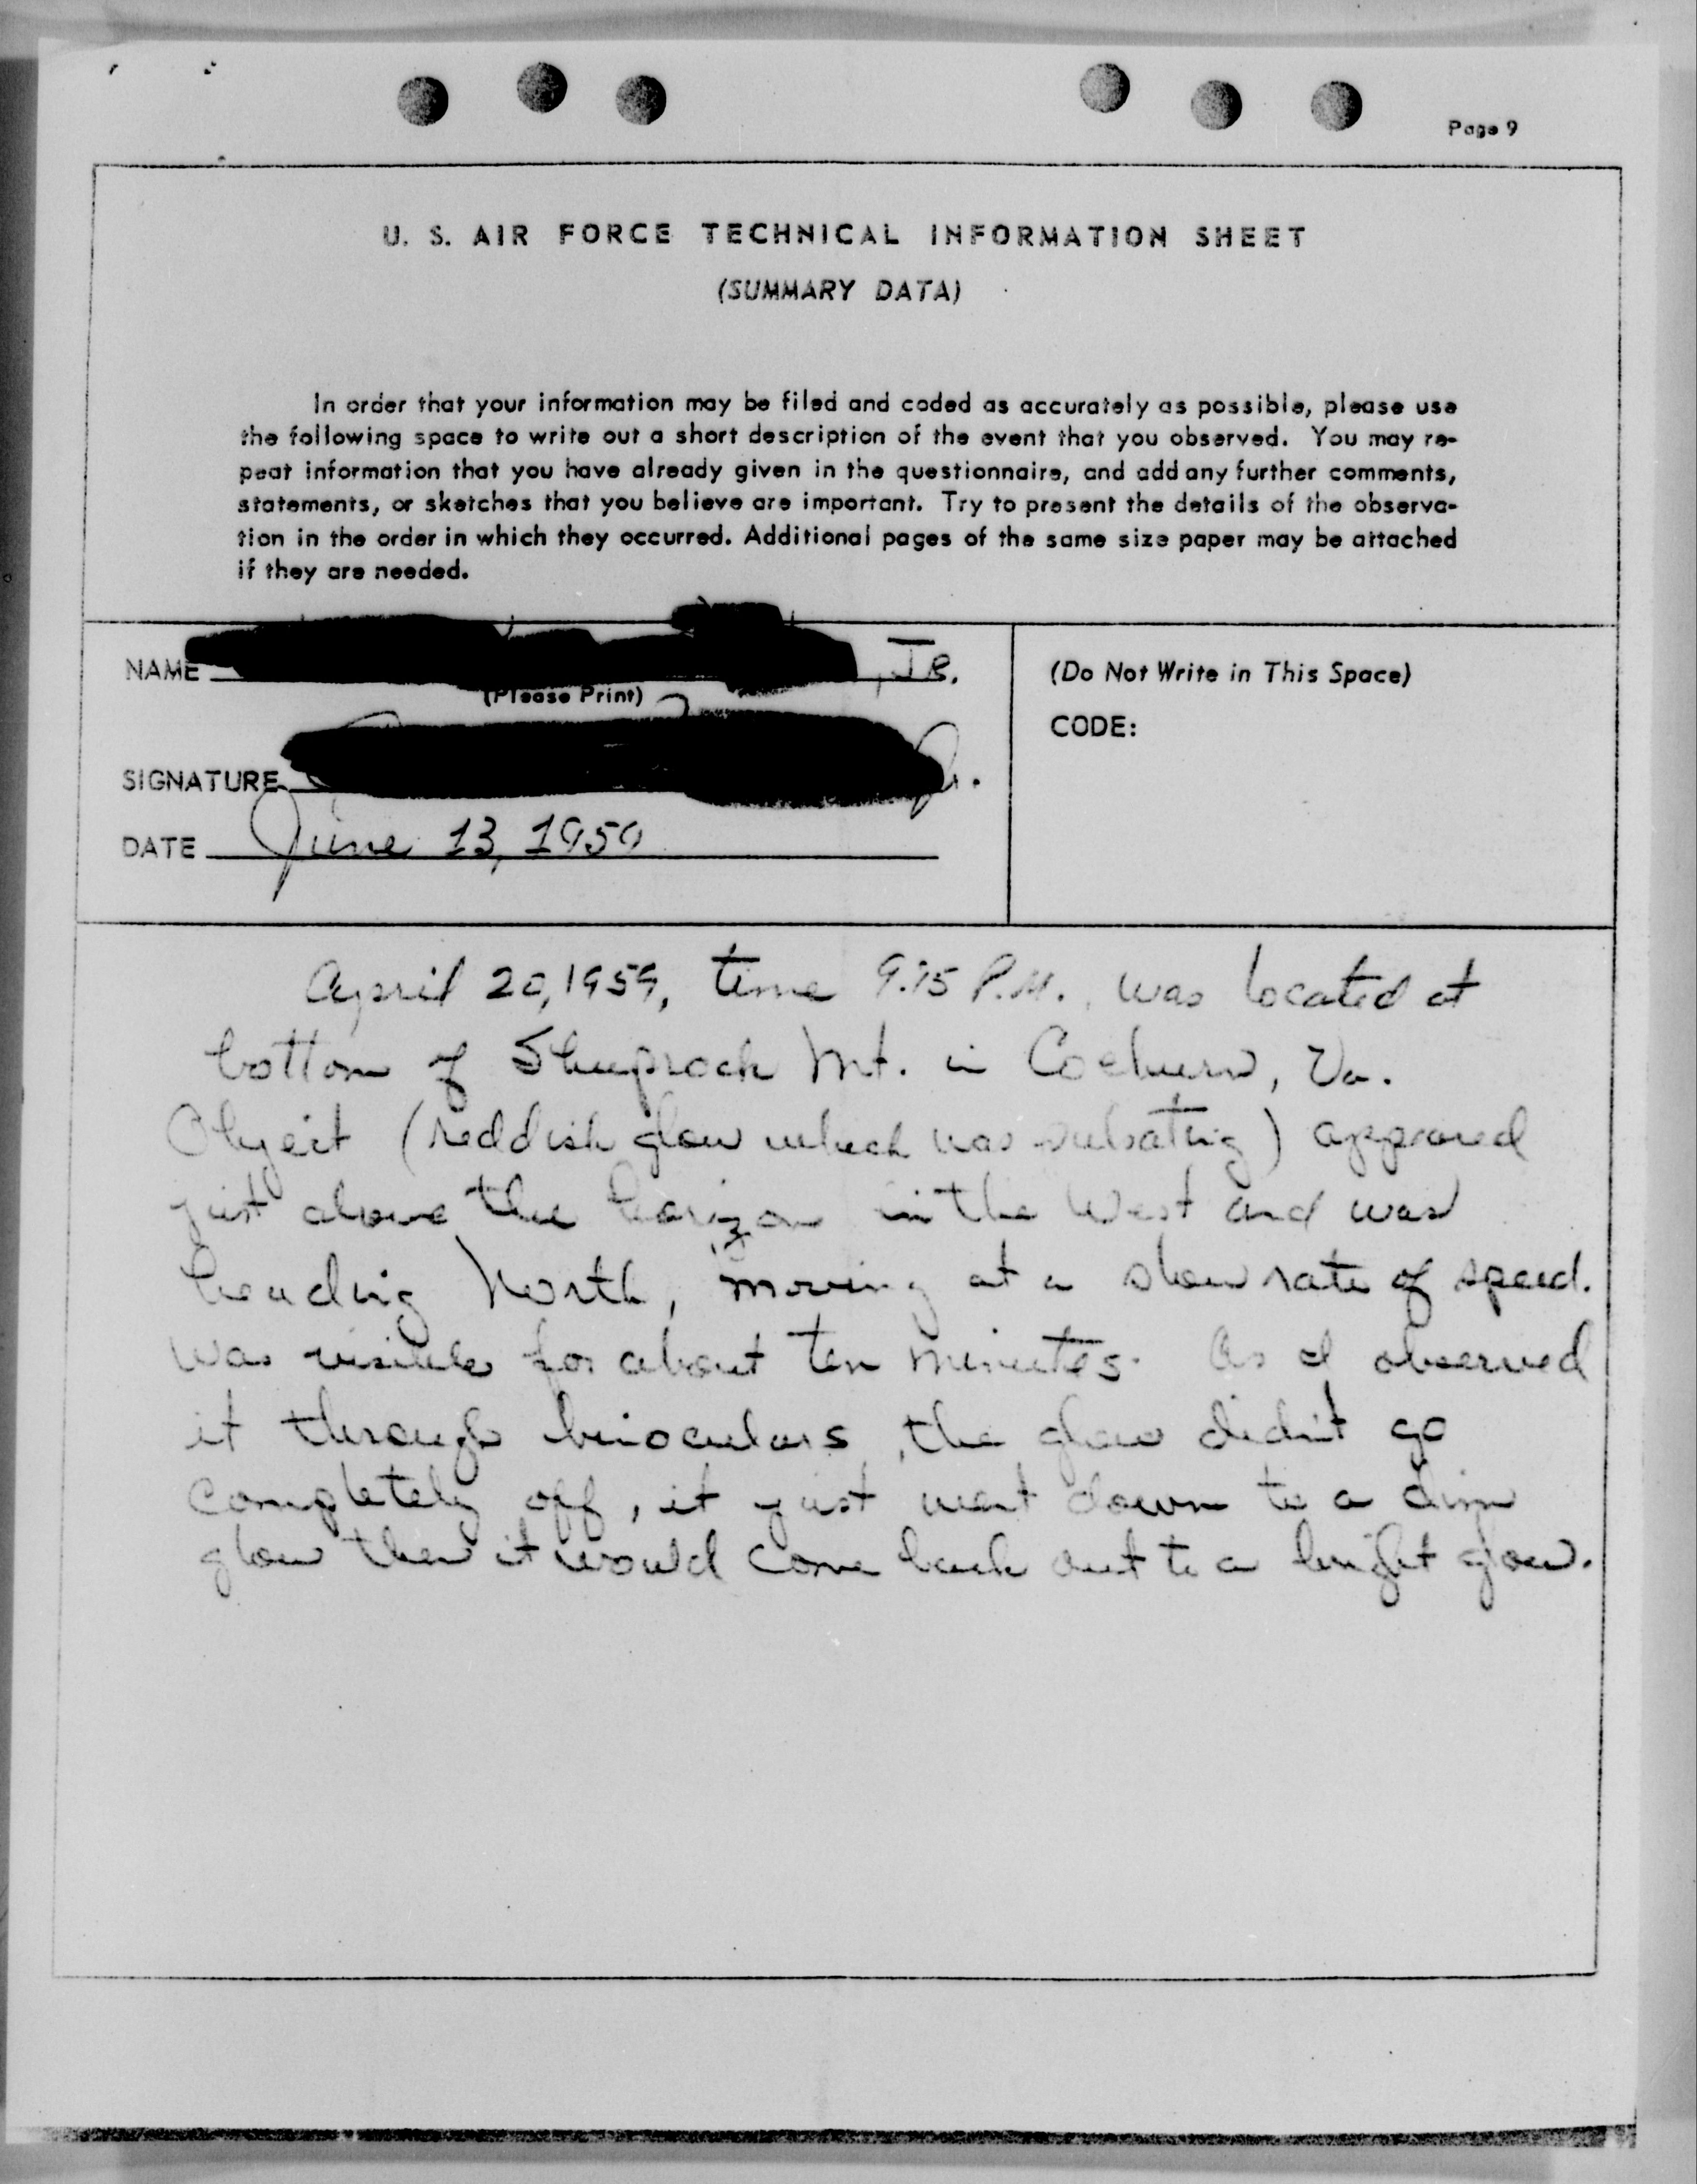 Page 9
U. S. AIR FORCE TECHNICAL INFORMATION SHEET
(SUMMARY DATA)
In order that your information may be filed and coded as accurately as possible, please use
the following space to write out a short description of the event that you observed. You may re-
peat information that you have already given in the questionnaire, and add any further comments,
statements, or sketches that you believe are important. Try to present the details of the observa-
tion in the order in which they occurred. Additional pages of the same size paper may be attached
if they are needed.
NAME , JR.
(Please Print)
SIGNATURE Jr.
DATE June 13, 1959
(Do Not Write in This Space)
CODE:
April 20, 1959, time 9:15 P.M., was located at
bottom of Mt. in Coeburn, Va.
Object (reddish glow which was pulsating) appeared
just above the horizon in the West and was
heading North, moving at a slow rate of speed.
Was visible for about ten minutes. As I observed
it through binoculars, the glow didn't go
completely off, it just went down to a dim
glow then it would come back out to a bright glow.